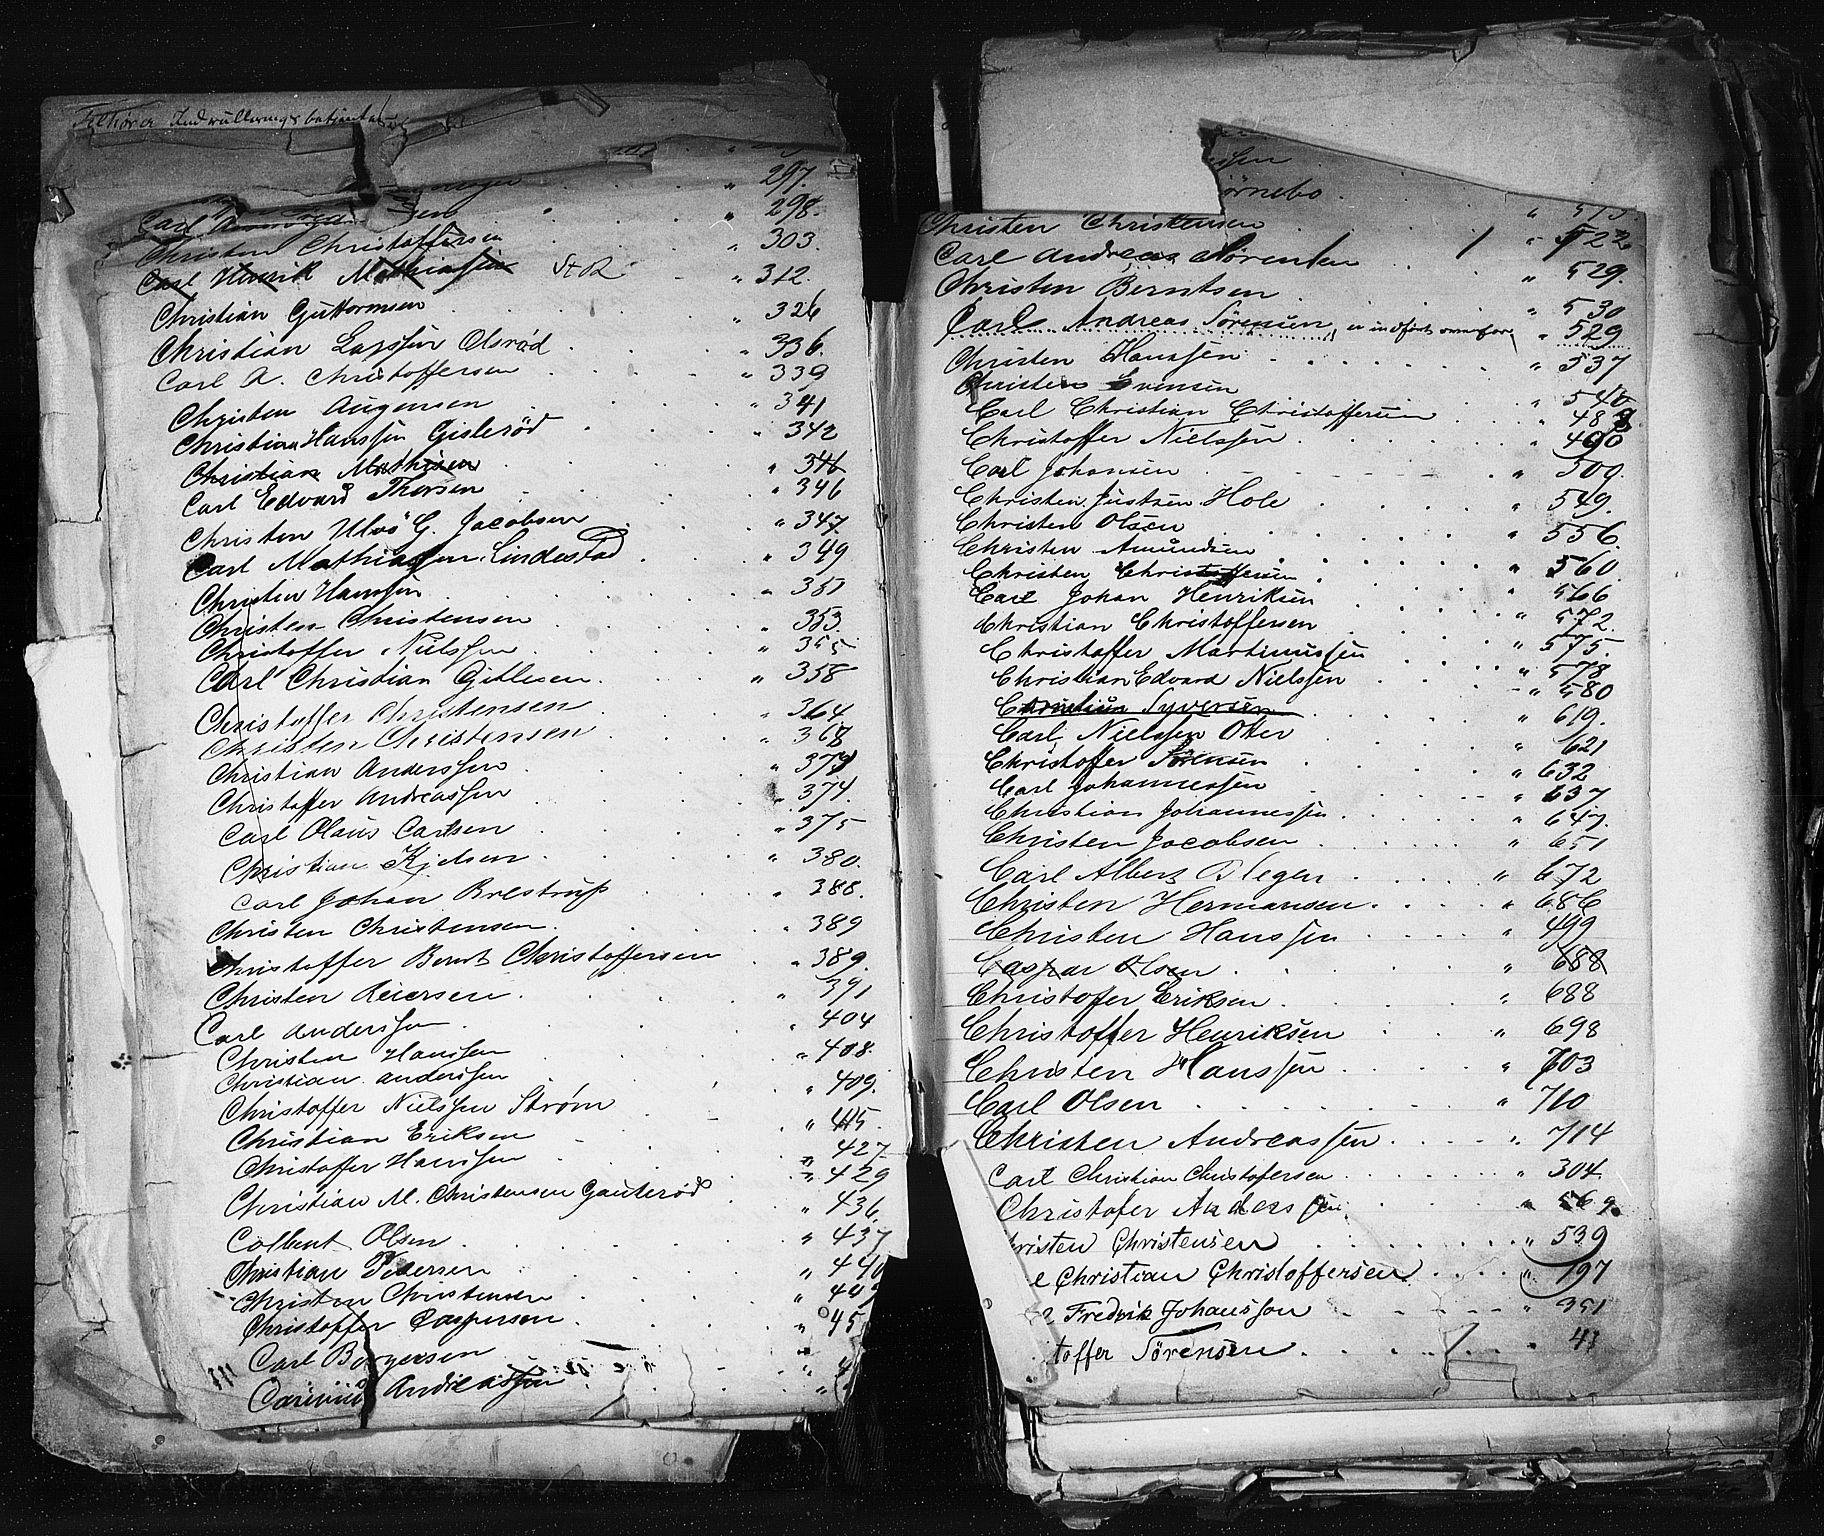 Tilhører Indrulleringsbetjenten
" 297.
" 298.
Carl
Christen Christoffersen " 303.
Carl Henrik Mathiassen St R " 312.
Christian Guttormsen " 326
Christian Larssen Olsrød " 336.
Carl A. Christoffersen " 339
Christen Augensen " 341
Christian Hanssen Gislerød " 342
Christian Mathisen " 346
Carl Edvard Thorsen " 346
Christen Ulvs G. Jacobsen " 347.
Carl Mathiassen Lindestad " 349
Christen Hanssen " 351
Christen Christensen " 353.
Christoffer Nielssen " 355
Carl Christian Gitlesen " 358
Christoffer Christensen " 364
Christen Christensen " 368
Christian Anderssen " 373
Christoffer Andreassen " 374.
Carl Olaus Carlsen " 375
Christian Kjelsen " 380.
Carl Johan Brestrup " 388.
Christen Christensen " 389
Christoffer Bernt Christoffersen " 389.
Christen Reiersen " 391
Carl Anderssen " 404
Christen Hanssen " 408.
Christian Anderssen " 409.
Christoffer Nielssen Strøm " 415.
Christian Eriksen " 427
Christoffer Hanssen " 429
Christian M. Christensen Gauterød " 436.
Colbent Olsen " 437
Christian Pedersen " 440
Christen Christensen " 44
Christoffer Caspersen " 45
Carl Børgersen "
Andreassen " 4
ørnebo
" 515.
Christen Christensen " 522
Carl Andreas Sørensen " 529.
Christen Berntsen " 530
Carl Andreas Sørensen, er indført ovenfor " 529
Christen Hanssen " 537
Christen Evensen " 540
Carl Christian Christoffersen " 488
Christoffer Nielssen " 490
Carl Johansen " 509.
Christen Justsen Hole " 549.
Christen Olsen " 556.
Christen Amundsen " 560
Christen Christoffersen " 566
Carl Johan Henriksen " 572.
Christian Christoffersen " 575.
Christoffer Martinussen " 578
Christian Edvard Nielssen " 580
Christian Syversen " 619.
Carl Nielssen Oter " 621
Christoffer Sørensen " 632
Carl Johannessen " 637
Christian Johannessen " 647.
Christen Jacobsen " 651
Carl Albert " 672
Christen Hermansen " 686
Christen Hanssen " 499
Caspar Olsen " 688
Christoffer Eriksen " 688
Christoffer Henriksen " 698
Christen Hanssen " 703
Carl Olsen " 710
Christen Andreassen " 714
Carl Christian Christofersen " 304.
Christofer Anderssen " 569
hristen Christensen " 539
e Christian Christoffersen " 197
Fredrik Johansson " 351
stoffer Sørensen " 41